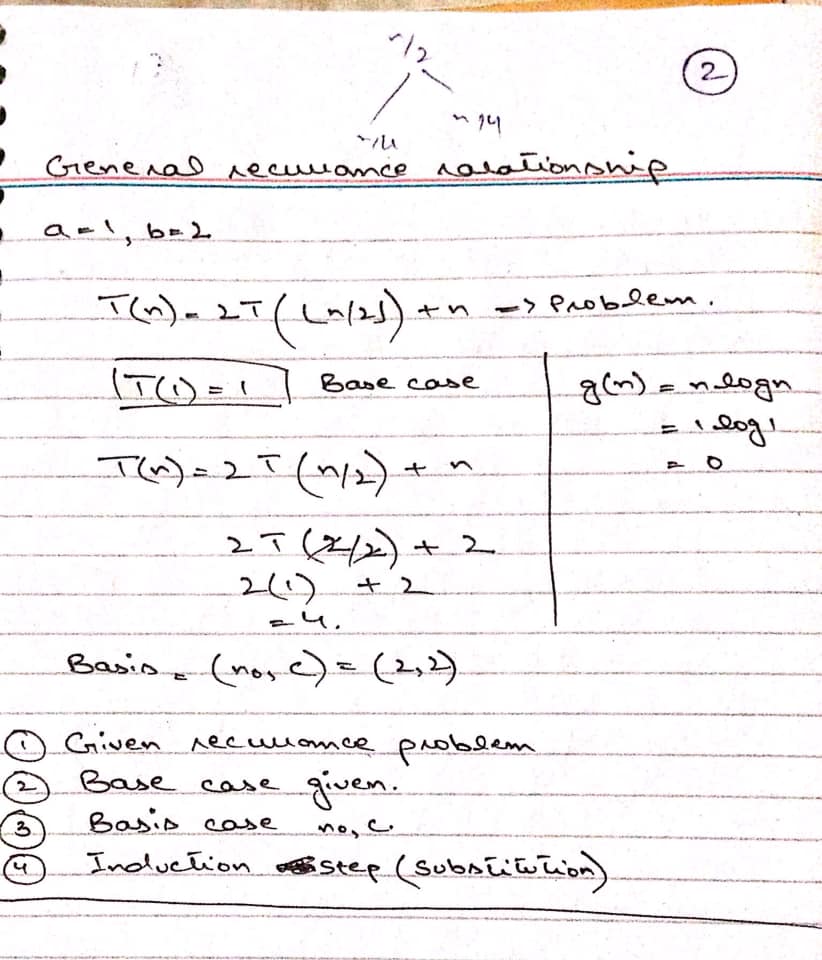 n/2
2
n/4
n/4
General recurrance ralationship
a=1, b=2
T(n) = 2T(⌊n/2⌋) + n => Problem.
T(1) = 1 Base case
T(n) = 2T(n/2) + n
2T(2/2) + 2
2(1) + 2
=4.
g(n) = n logn
= 1 log1
= 0
Basis = (no, c) = (2,2)
1 Given recurrance problem
2 Base case given.
3 Basis case no, c.
4 Induction step (Substitution)